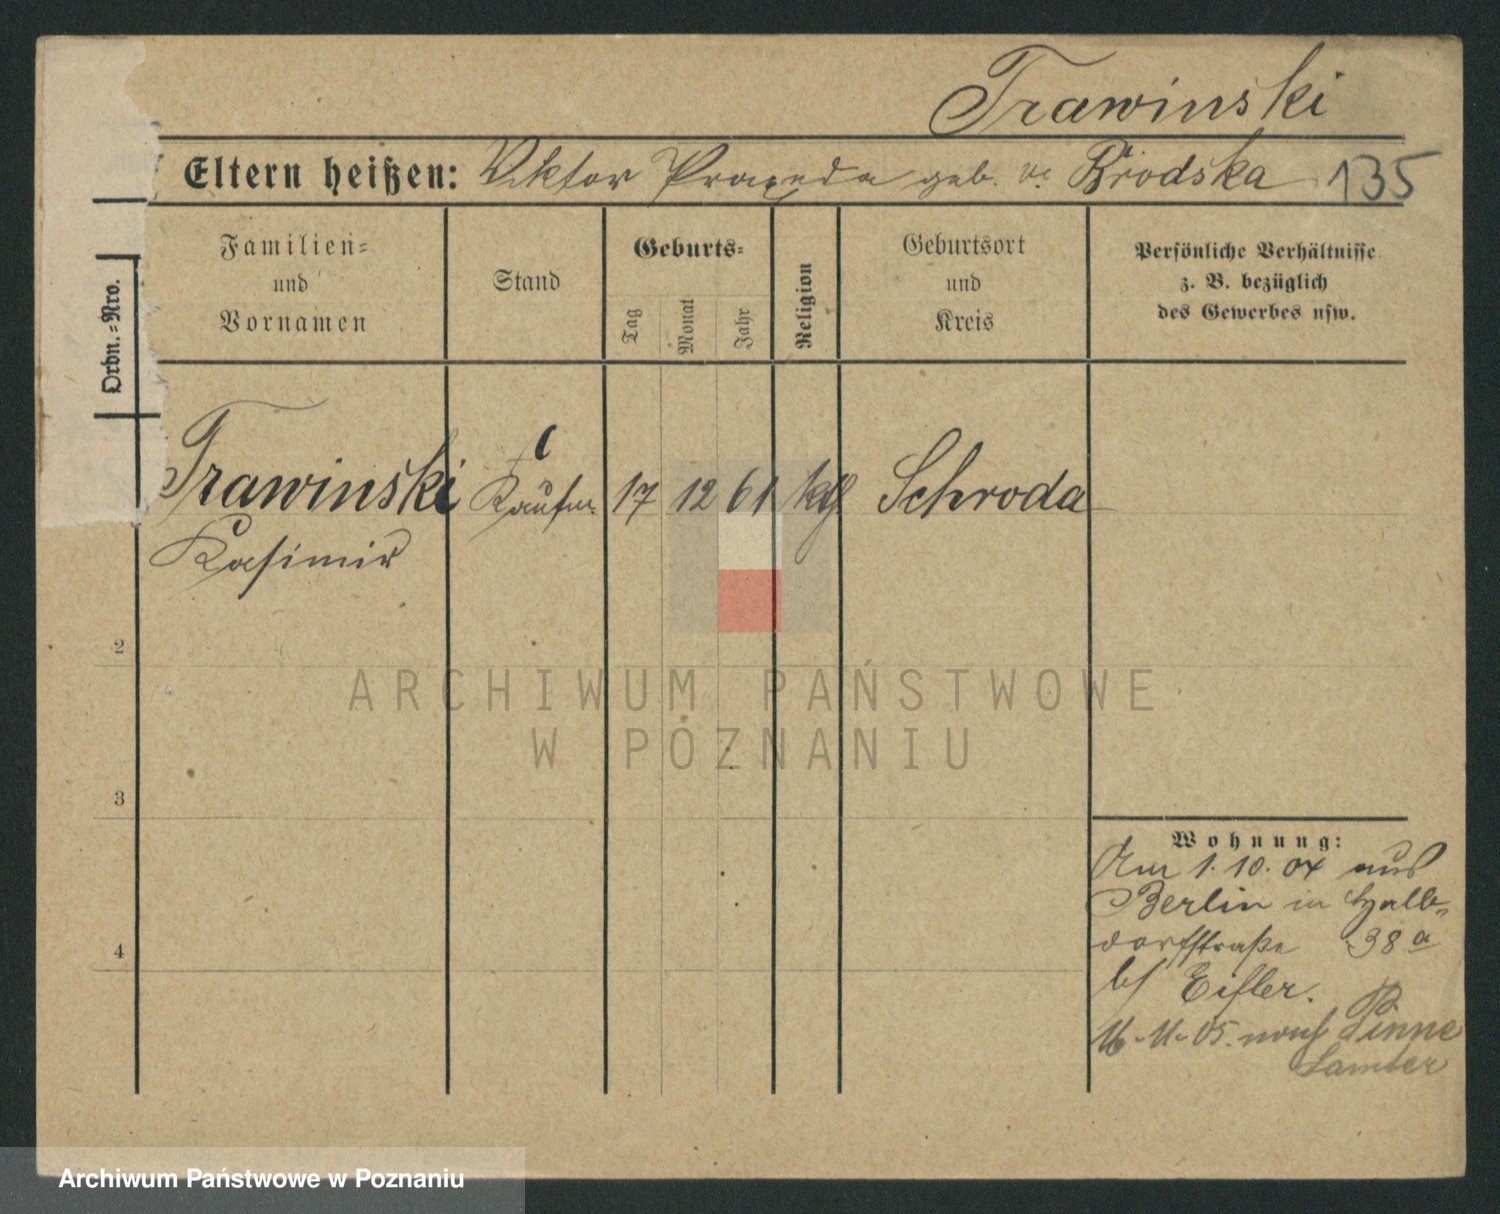 Trawinski
Eltern heißen: Viktor Praxeda geb. v. Brodska 135
Ordn.-Nro.
Familien-
und
Vornamen
Stand
Geburts-
Tag
Monat
Jahr
Religion
Geburtsort
und
Kreis
Persönliche Verhältnisse
z. B. bezüglich
des Gewerbes usw.
Trawinski Kaufm. 17 12 61 kth Schroda
Kasimir
2
3
4
ARCHIWUM PAŃSTWOWE
W POZNANIU
Wohnung:
Am 1. 10. 04 aus
Berlin in Halb-
dorfstraße 38 a
bf Eifler.
16. 11. 05. nach Pinne
Samter
Archiwum Państwowe w Poznaniu